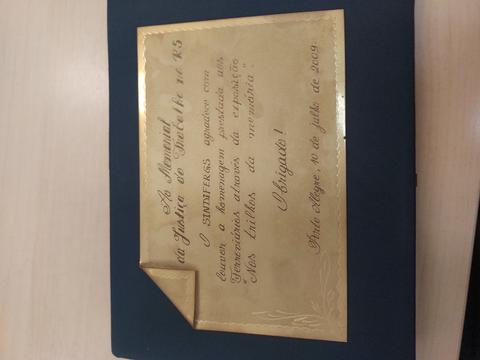 Ao Memorial
da Justiça do Trabalho no RS
O SINDIFERGS agradece com
louvor a homenagem prestada aos
Ferroviários através da exposição
"Nos trilhos da memória".
Obrigado!
Porto Alegre, 10 de julho de 2009.